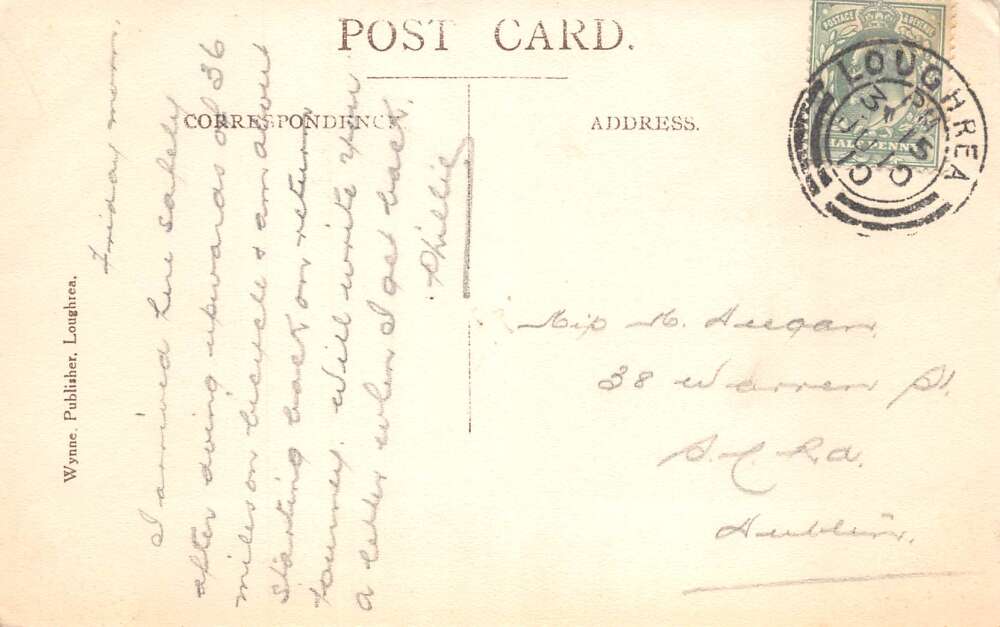 POST CARD.
CORRESPONDENCE
ADDRESS.
POSTAGE & REVENUE
HALFPENNY
LOUGHREA
3 PM
JU 15
10
Wynne, Publisher, Loughrea.
Friday morn.
I arrived here safely
after doing upwards of 36
miles on bicycle & am about
starting back on return
journey. Will write you
a letter when I get back.
Phillie
Miss M. Heegan,
38 Warren St.
S.C. Rd.
Dublin.